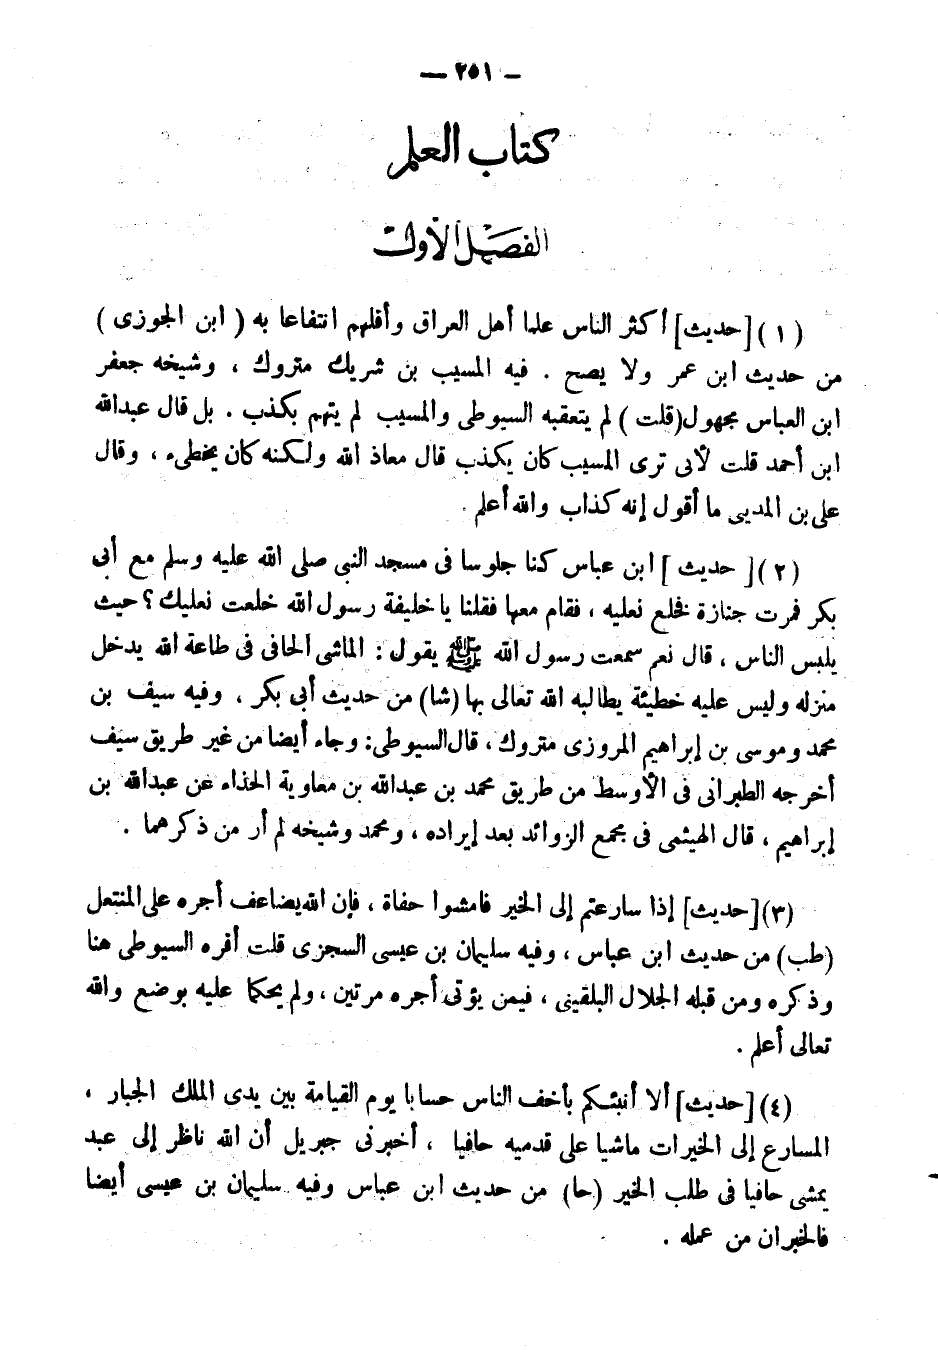 — ٢٥١ —
كتاب العلم
الفصل الأول
(١) [حديث] أكثر الناس علما أهل العراق وأقلهم انتفاعا به (ابن الجوزى)
من حديث ابن عمر ولا يصح . فيه المسيب بن شريك متروك ، وشيخه جعفر
ابن العباس مجهول (قلت) لم يتعقبه السيوطى والمسيب لم يتهم بكذب . بل قال عبدالله
ابن أحمد قلت لأبى ترى المسيب كان يكذب قال معاذ الله ولكنه كان يخطىء ، وقال
على بن المدينى ما أقول إنه كذاب والله أعلم .
(٢) [حديث] ابن عباس كنا جلوسا فى مسجد النبى صلى الله عليه وسلم مع أبى
بكر فمرت جنازة فخلع نعليه ، فقام معها فقلنا يا خليفة رسول الله خلعت نعليك ؟ حيث
يلبس الناس ، قال نعم سمعت رسول الله ﷺ يقول : الماشى الحافى فى طاعة الله يدخل
منزله وليس عليه خطيئة يطالبه الله تعالى بها (شا) من حديث أبى بكر ، وفيه سيف بن
محمد وموسى بن إبراهيم المروزى متروك ، قال السيوطى : وجاء أيضا من غير طريق سيف
أخرجه الطبرانى فى الأوسط من طريق محمد بن عبدالله بن معاوية الحذاء عن عبدالله بن
إبراهيم ، قال الهيثمى فى مجمع الزوائد بعد إيراده ، ومحمد وشيخه لم أر من ذكرهما .
(٣) [حديث] إذا سارعتم إلى الخير فامشوا حفاة ، فإن الله يضاعف أجره على المنتعل
(طب) من حديث ابن عباس ، وفيه سليمان بن عيسى السجزى قلت أقره السيوطى هنا
وذكره ومن قبله الجلال البلقينى ، فيمن يؤتى أجره مرتين ، ولم يحكما عليه بوضع والله
تعالى أعلم .
(٤) [حديث] ألا أنبئكم بأخف الناس حسابا يوم القيامة بين يدى الملك الجبار ،
المسارع إلى الخيرات ماشيا على قدميه حافيا ، أخبرنى جبريل أن الله ناظر إلى عبد
يمشى حافيا فى طلب الخير (حا) من حديث ابن عباس وفيه سليمان بن عيسى أيضا
فالخبران من عمله .